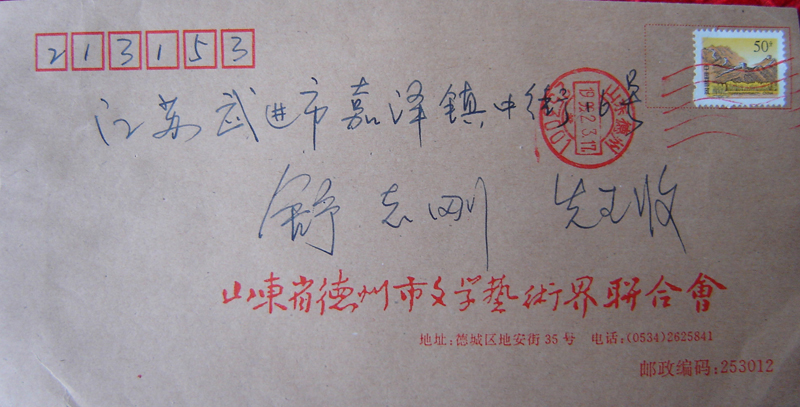 213153
50分
江苏武进市嘉泽镇中街6号
山东德州
舒志刚 先生收
山東省德州市文学藝術界聯合會
地址:德城区地安街35号 电话:(0534)2625841
邮政编码:253012